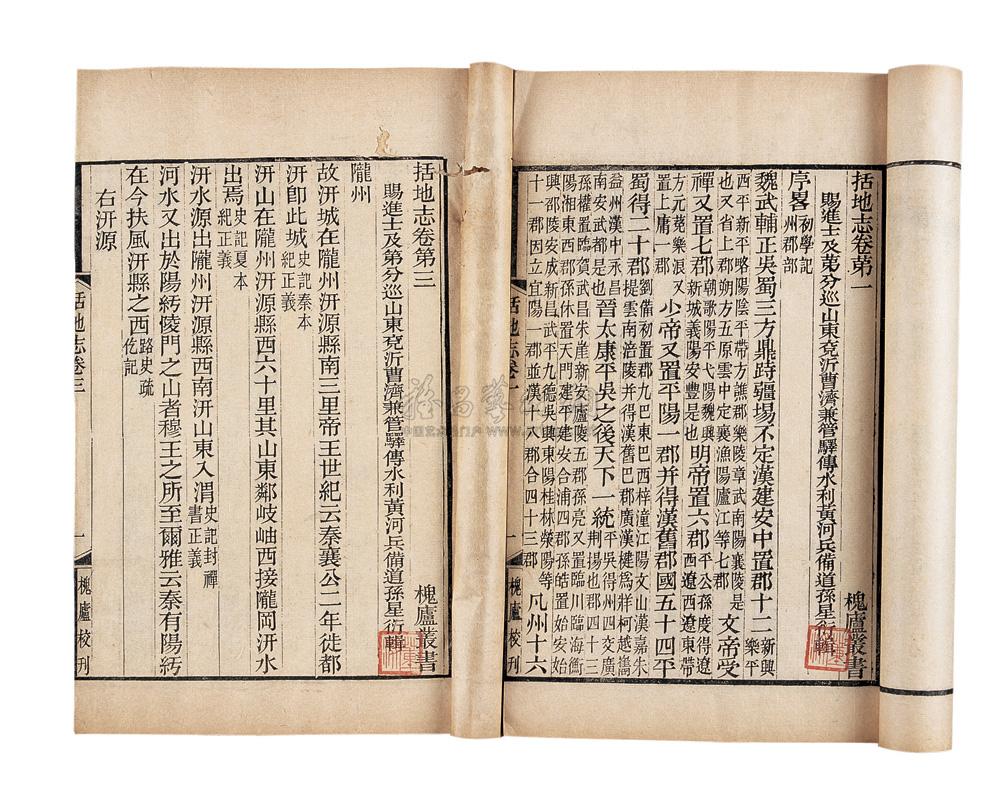 括地志卷苐一
槐廬叢書
賜進士及苐分巡山東兗沂曹濟兼管驛傳水利黃河兵備道孫星衍輯
序畧初學記州郡部
魏武輔正吳蜀三方鼎跱疆埸不定漢建安中置郡十二新興樂平
西平新平略陽陰平帶方譙郡樂陵章武南陽襄陵是
也又省上郡朔方五原雲中定襄漁陽廬江等七郡文帝受
禪又置七郡朝歌陽平弋陽魏興新城義陽安豐是也明帝置六郡平公孫度得遼西遼東帶
方元菟樂浪又置上庸一郡少帝又置平陽一郡并得漢舊郡國五十四平
蜀得二十郡劉備初置郡九巴東巴西梓潼江陽文山漢嘉朱提雲南涪陵并得漢舊巴郡廣漢犍爲牂柯越巂
益州漢中永昌南安武都是也晉太康平吳之後天下一統平吳得州四交廣荆揚也郡四十三
孫權置臨賀武昌朱崖新安廬陵五郡孫亮又置臨川臨海衡
陽湘東四郡孫休置天門建平建安合浦四郡孫皓置始安始
興邵陵安成新昌武平九德吳興東陽桂林滎陽等
十一郡因立宜陽一郡並漢十八郡合四十三郡凡州十六
括地志卷一
一
槐廬校刊
括地志卷第三
槐廬叢書
賜進士及第分巡山東兗沂曹濟兼管驛傳水利黃河兵備道孫星衍輯
隴州
故汧城在隴州汧源縣南三里帝王世紀云秦襄公二年徙都
汧卽此城史記秦本紀正義
汧山在隴州汧源縣西六十里其山東鄰岐岫西接隴岡汧水
出焉史記夏本紀正義
汧水源出隴州汧源縣西南汧山東入渭史記封禪書正義
河水又出於陽紆陵門之山者穆王之所至爾雅云秦有陽紆
在今扶風汧縣之西路史疏仡記
右汧源
括地志卷三
一
槐廬校刊